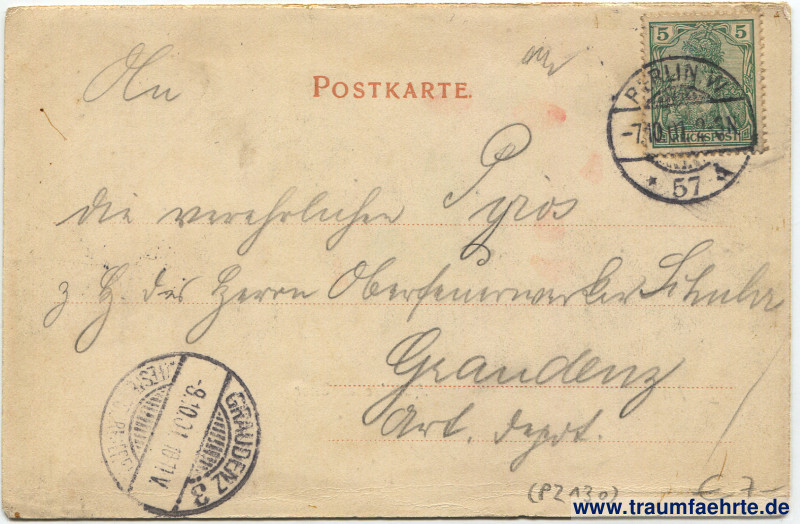 An
POSTKARTE.
5 5
REICHSPOST
BERLIN W.
-7.10.01
* 57
die verehrlichen Pyros
z. H. des Herrn Oberfeuerwerker
Graudenz
Art. Depot.
GRAUDENZ 3
-9.10.01
V
(PZ130)
€ 7-
www.traumfaehrte.de